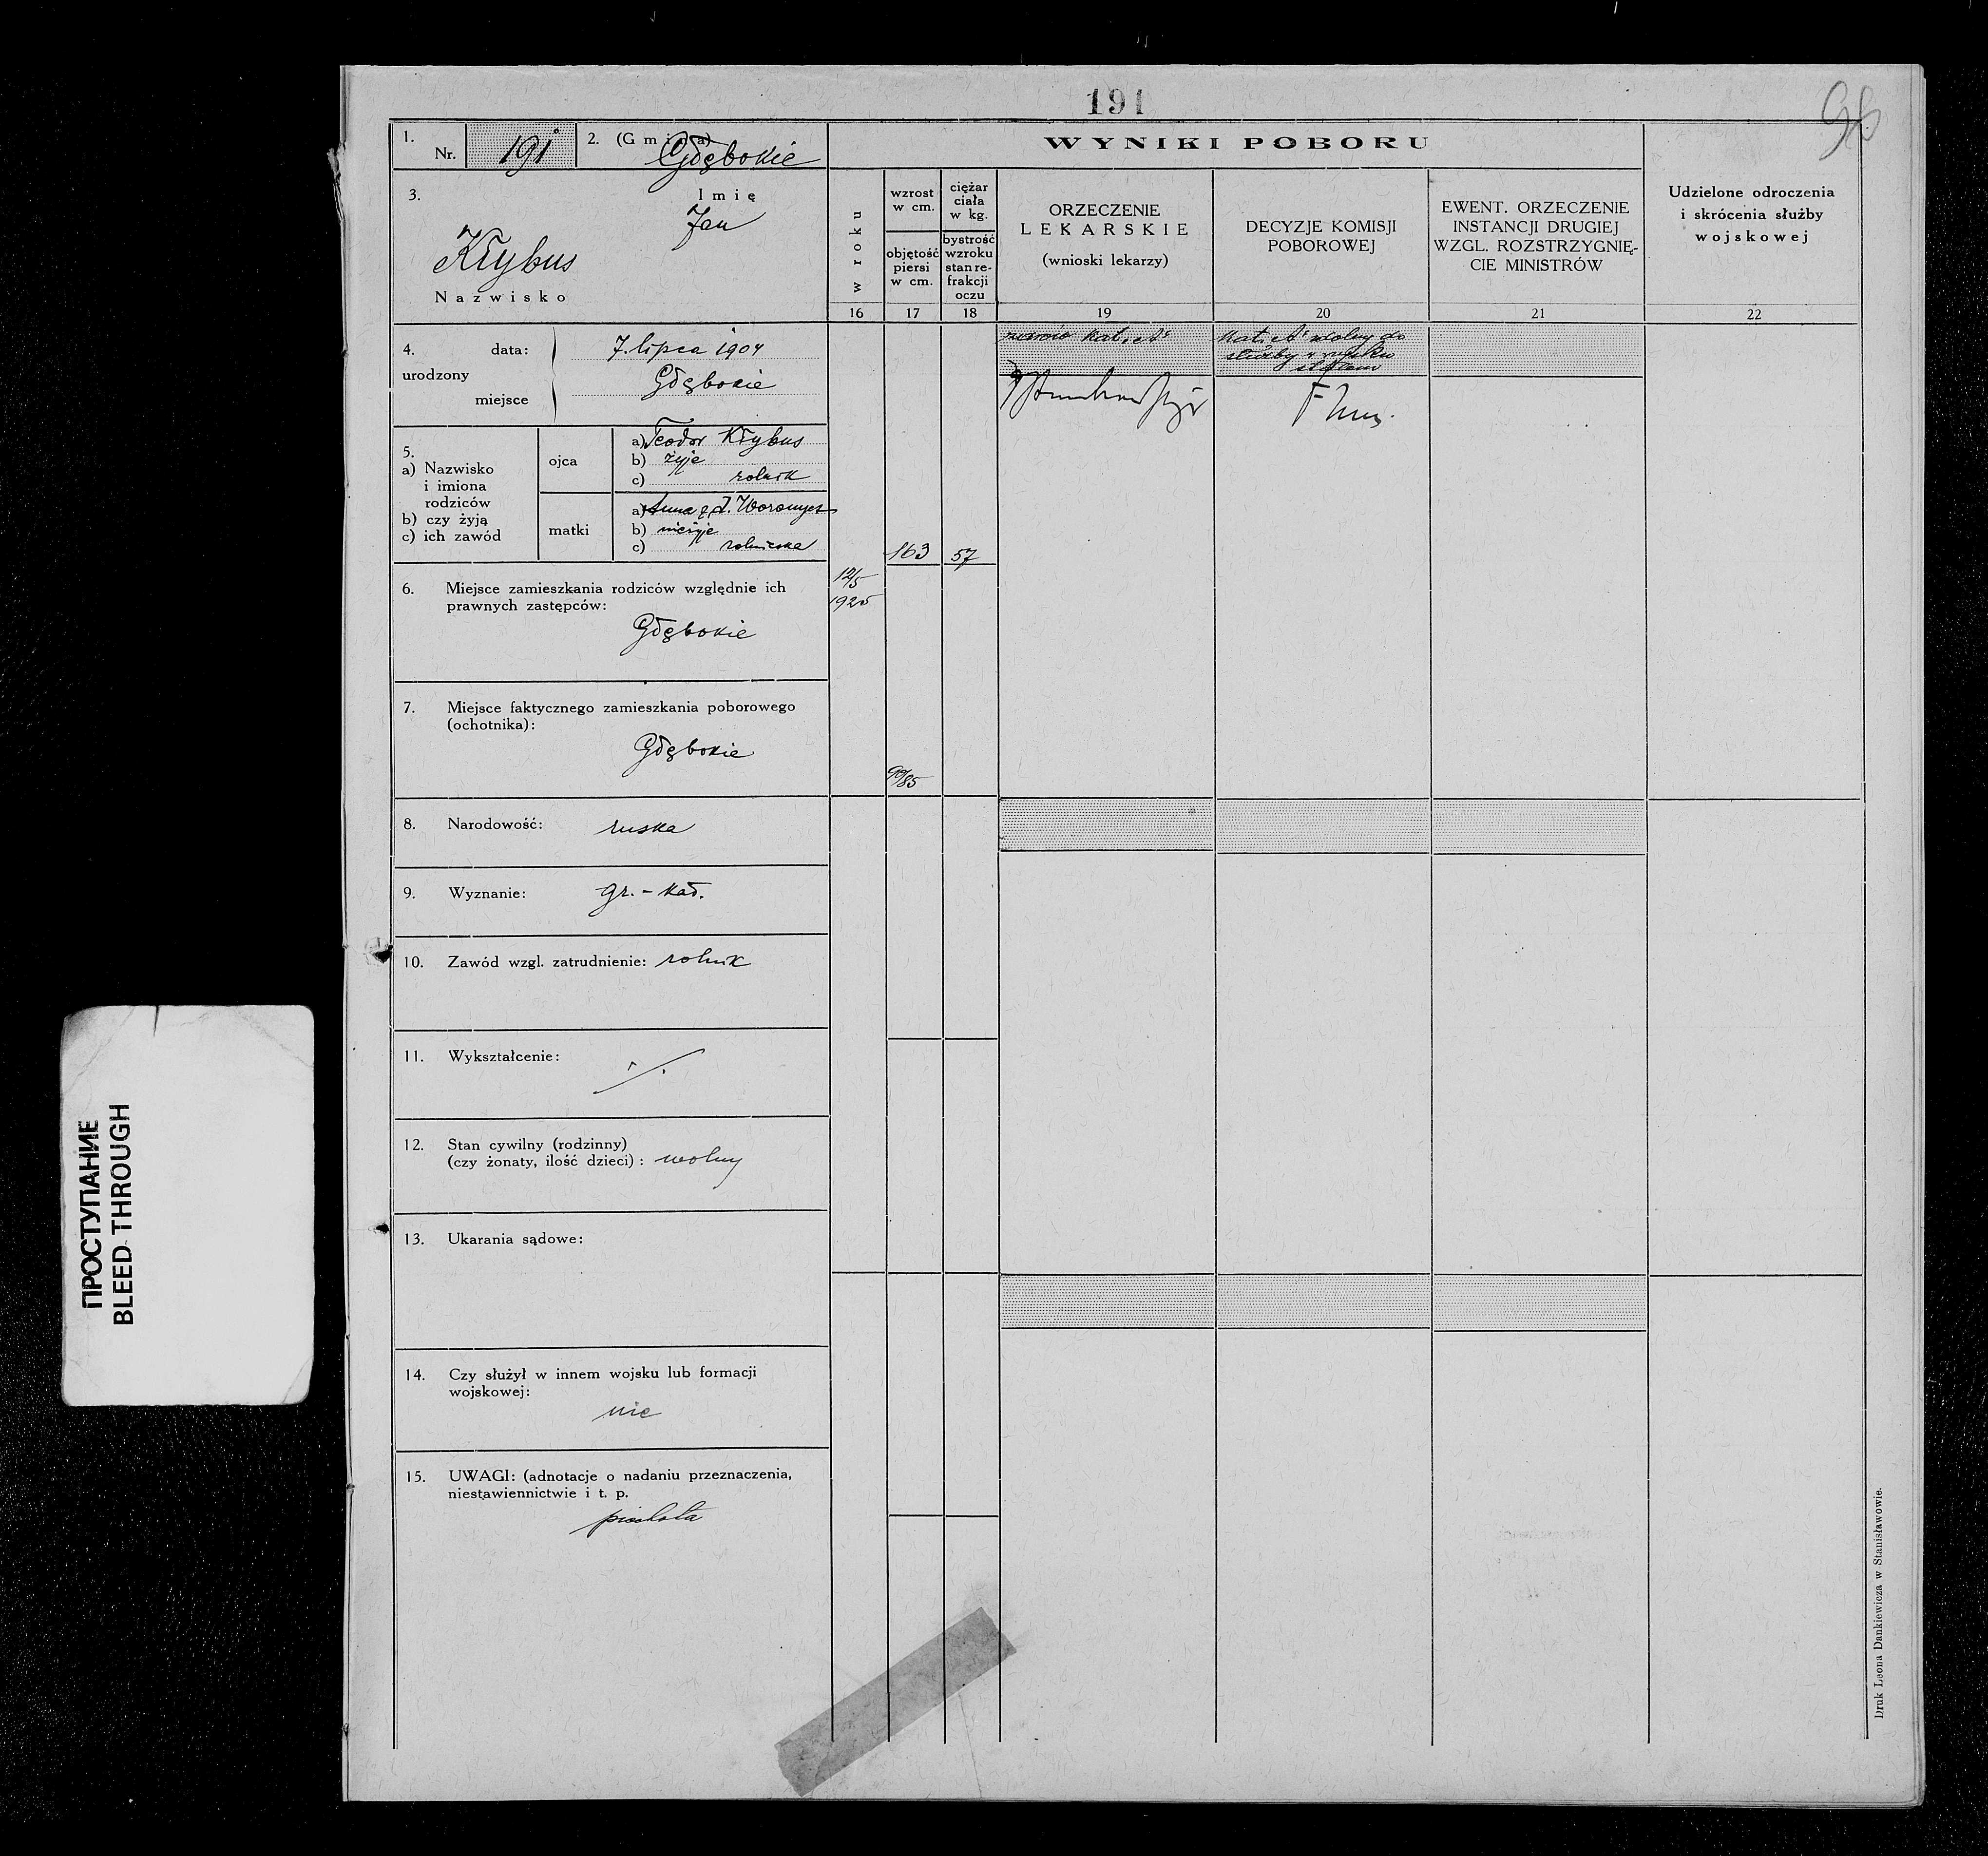 191
96
1.
Nr. 191
2. (Gmina) Głębokie
WYNIKI POBORU
3.
Imię
Jan
Kłybus
Nazwisko
w roku
wzrost
w cm.
objętość
piersi
w cm.
ciężar
ciała
w kg.
bystrość
wzroku
stan re-
frakcji
oczu
ORZECZENIE
LEKARSKIE
(wnioski lekarzy)
DECYZJE KOMISJI
POBOROWEJ
EWENT. ORZECZENIE
INSTANCJI DRUGIEJ
WZGL. ROZSTRZYGNIĘ-
CIE MINISTRÓW
Udzielone odroczenia
i skrócenia służby
wojskowej
16
17
18
19
20
21
22
4.
urodzony
data: 7. lipca 1904
miejsce Głębokie
5.
a) Nazwisko
i imiona
rodziców
b) czy żyją
c) ich zawód
ojca
a) Teodor Kłybus
b) żyje
c) rolnik
matki
a) Anna z d.
b) nieżyje
c) rolniczka
163
57
12/5
1925
6. Miejsce zamieszkania rodziców względnie ich
prawnych zastępców:
Głębokie
7. Miejsce faktycznego zamieszkania poborowego
(ochotnika):
Głębokie
90/85
8. Narodowość: ruska
9. Wyznanie: gr.-kat.
10. Zawód wzgl. zatrudnienie: rolnik
11. Wykształcenie:
12. Stan cywilny (rodzinny)
(czy żonaty, ilość dzieci): wolny
13. Ukarania sądowe:
14. Czy służył w innem wojsku lub formacji
wojskowej:
nie
15. UWAGI: (adnotacje o nadaniu przeznaczenia,
niestawiennictwie i t. p.
piechota
Druk Leona Dankiewicza w Stanisławowie.
ПРОСТУПАНИЕ
BLEED THROUGH